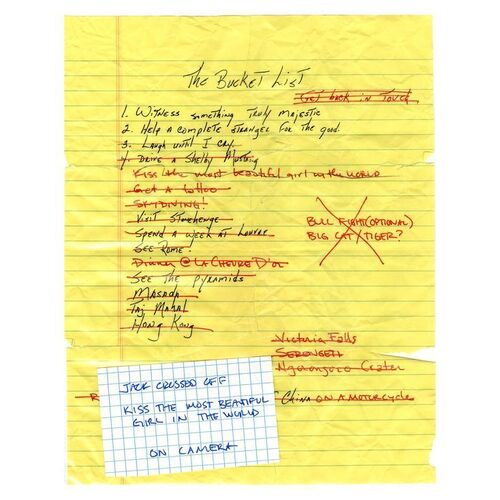 The Bucket List
Get back in Touch
1. Witness something Truly Majestic
2. Help a complete stranger for the good.
3. Laugh until I cry
4. Drive a Shelby Mustang
Kiss the most beautiful girl in the world
Get a tattoo
SKYDIVING!
Visit Stonehenge
Spend a week at Louvre
See Rome!
Dinner @ La CHEVRE D'or
See the pyramids
BULL FIGHT (OPTIONAL)
BIG CAT (TIGER?
Masada
Taj Mahal
Hong Kong
Victoria Falls
SERENGETI
Ngorongoro Crater
R
CHINA ON A MOTORCYCLE
JACK CROSSED OFF
KISS THE MOST BEAUTIFUL
GIRL IN THE WORLD
ON CAMERA